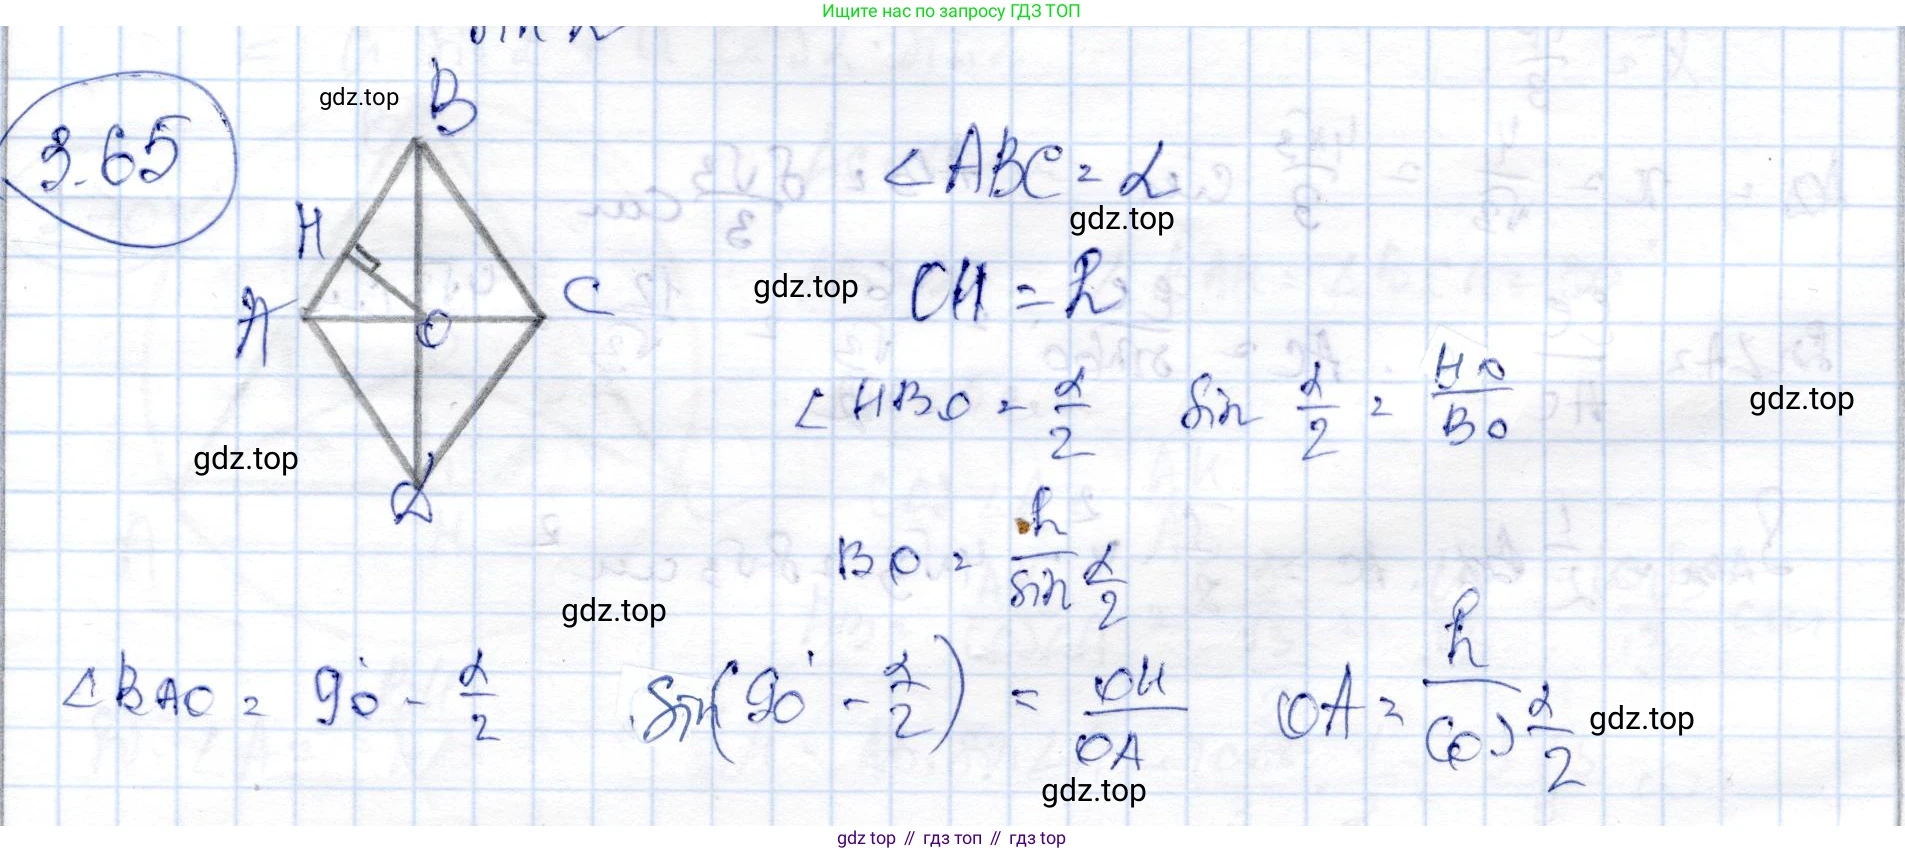 Ищите нас по запросу ГДЗ ТОП
3.65
gdz.top
B
H
A
C
O
D
∠ABC = α
gdz.top
gdz.top
OH = h
∠HBO = α/2 sin α/2 = HO/BO
gdz.top
gdz.top
BO = h/sin α/2
gdz.top
∠BAO = 90° - α/2 sin(90° - α/2) = OH/OA OA = h/cos α/2
gdz.top
gdz.top
gdz top // гдз топ // гдз top